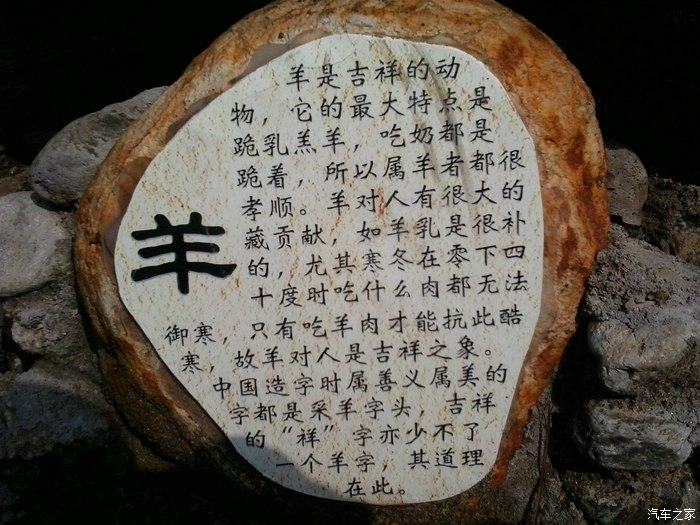 羊
羊是吉祥的动
物，它的最大特点是
跪乳羔羊，吃奶都是
跪着，所以属羊者都很
孝顺。羊对人有很大的
藏贡献，如羊乳是很补
的，尤其寒冬在零下四
十度时吃什么肉都无法
御寒，只有吃羊肉才能抗此酷
寒，故羊对人是吉祥之象。
中国造字时属善义属美的
字都是采羊字头，吉祥
的“祥”字亦少不了
一个羊字，其道理
在此。
汽车之家